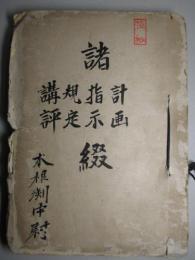 諸
計画
指示
規定
講評
綴
木根渕中尉